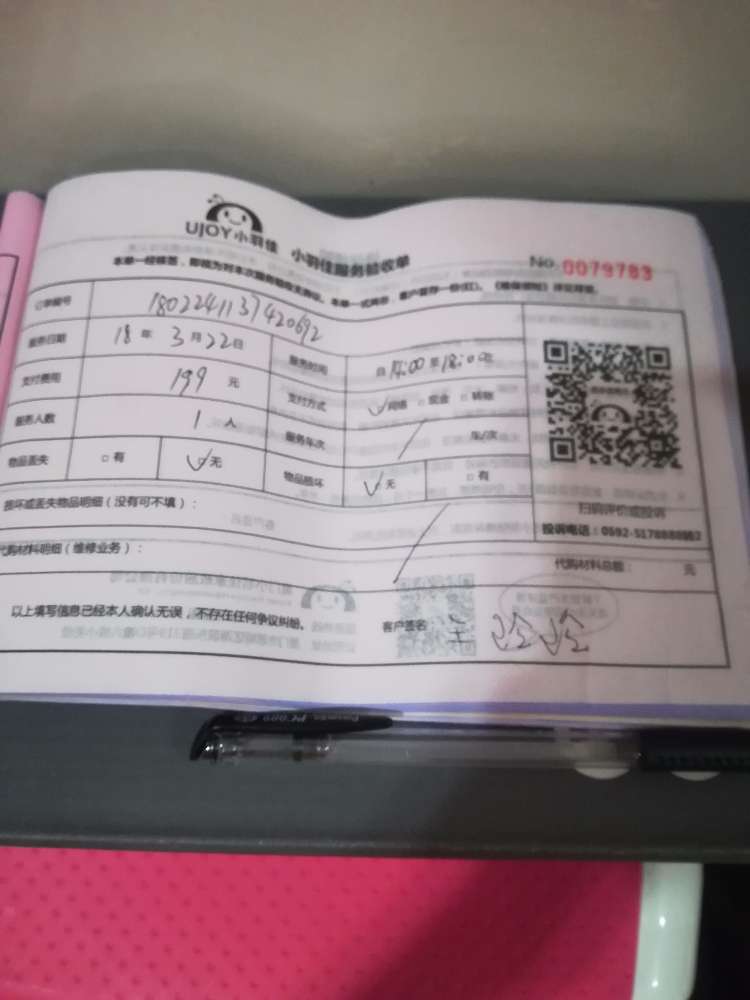 UJOY小羽佳 小羽佳服务验收单
No. 0079783
本单一经签, 即视为对本次服务
订单编号 1802241137420692
服务日期 18 年 3 月 22 日 服务时间 自 14:00 至 18:00 止
支付费用 199 元 支付方式 网络 现金 转账
服务人数 1 人 服务年次 年/次
物品丢失 有 无 物品损坏 无 有
损坏或丢失物品明细(没有可不填):
扫码评价或投诉
投诉电话:0592-5178888转2
代购材料明细(维修业务):
代购材料总额: 元
以上填写信息已经本人确认无误,不存在任何争议纠纷。 客户签名 王